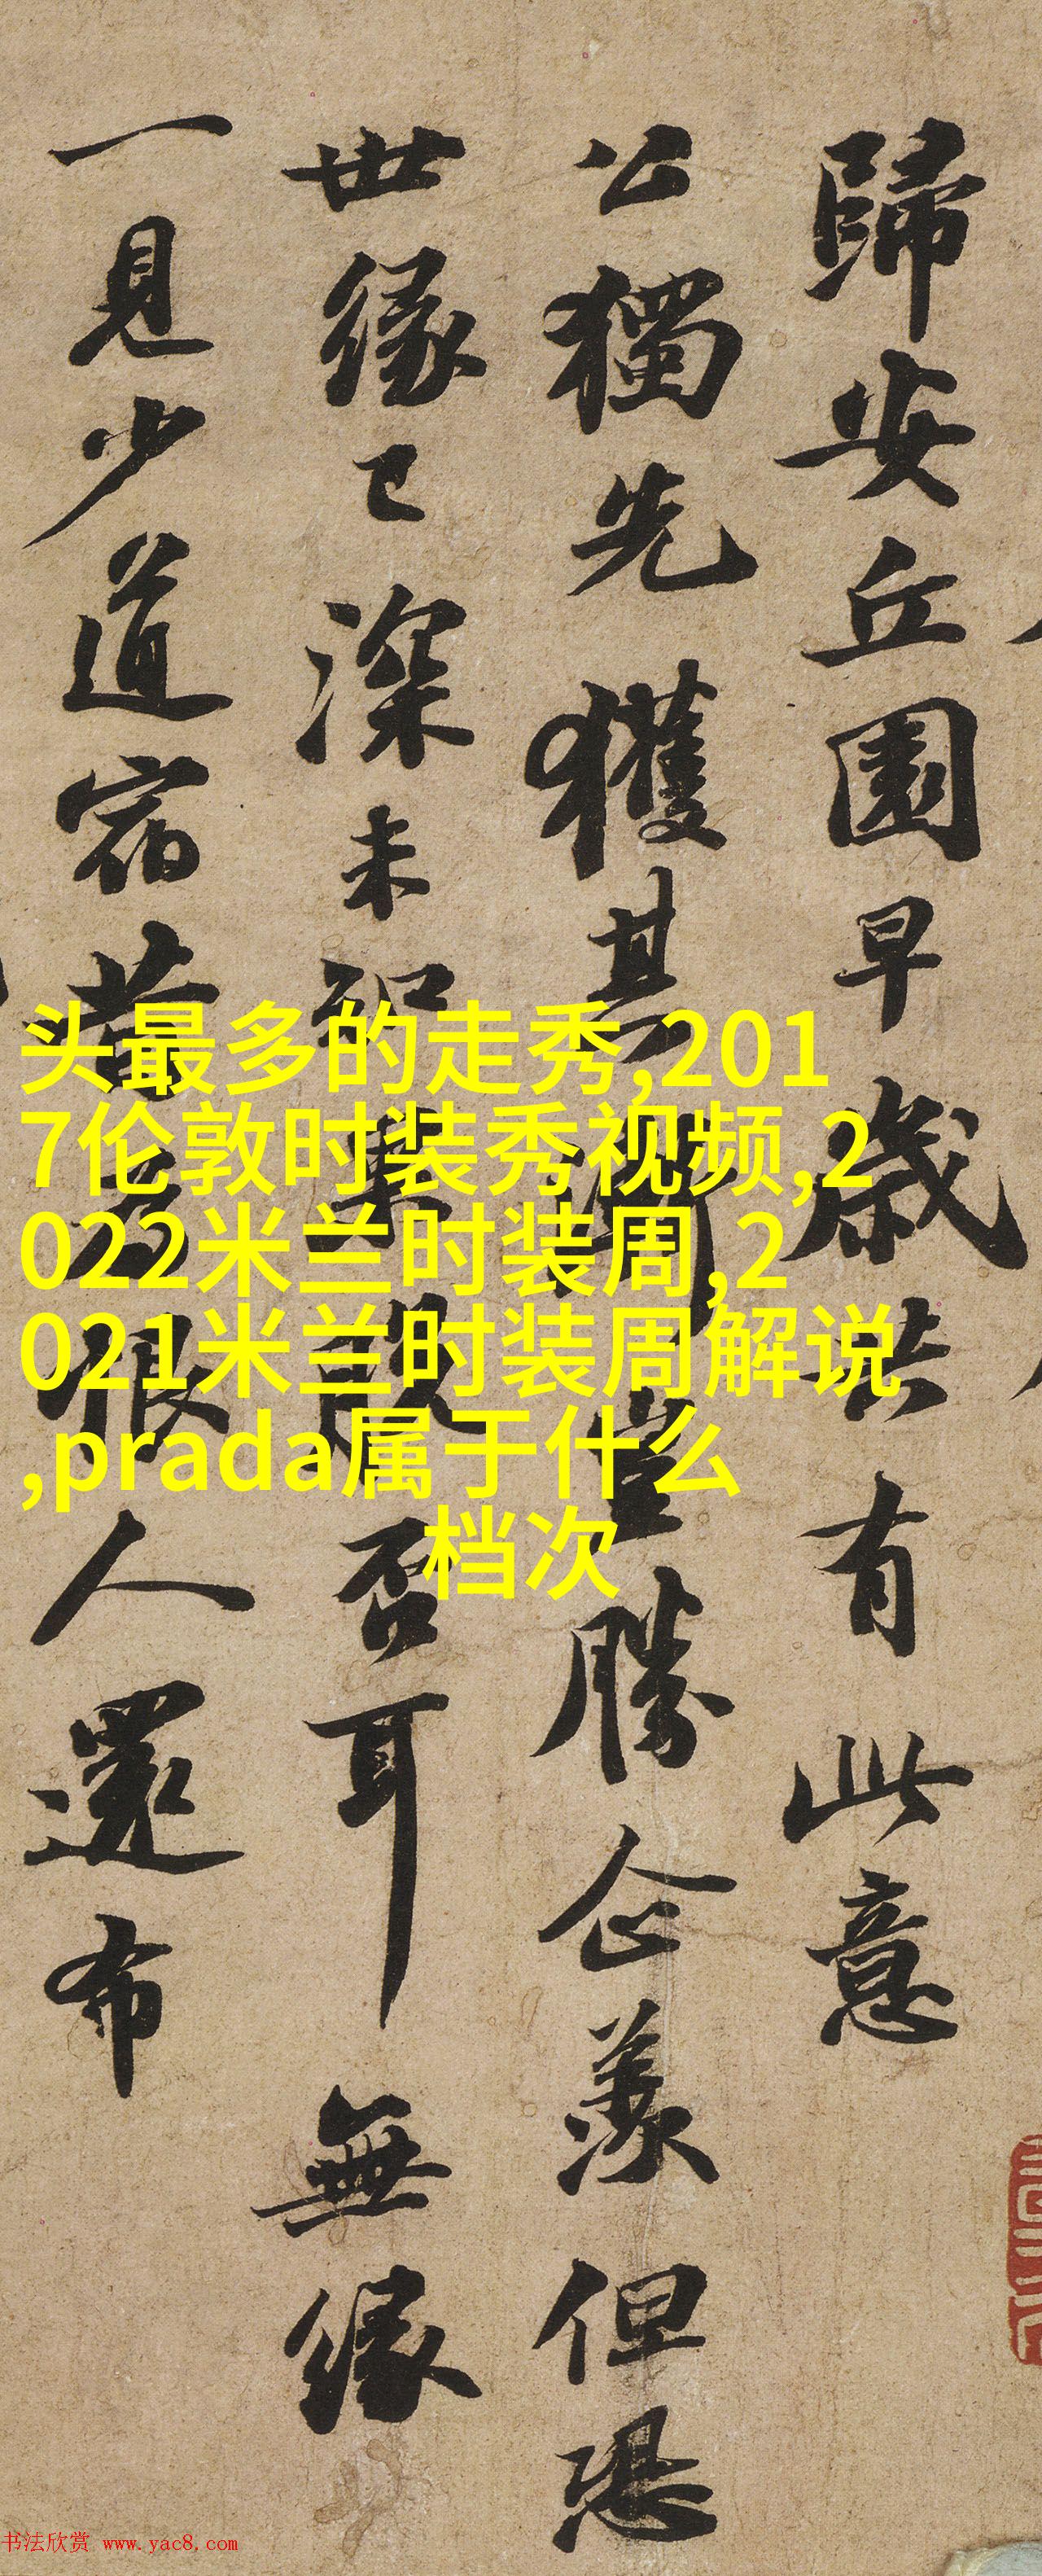 歸安丘園早歲共有此意
公獨先獲其漸豈勝企羨但恐
世緣已深未知果脫否耳無緣
一見少道宿昔為恨人還布
头最多的走秀,201
7伦敦时装秀视频,2
022米兰时装周,2
021米兰时装周解说
,prada属于什么
档次
书法欣赏 www.yac8.com